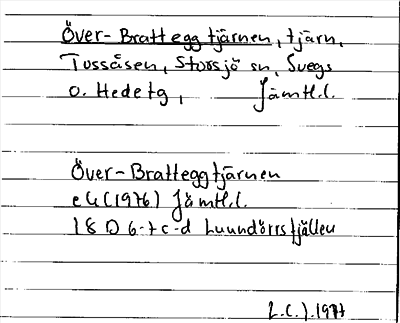 Över-Brattegg tjärnen, tjärn,
Tossåsen, Storsjö sn, Svegs
o. Hede tg, Jämtl.l.
Över-Bratteggtjärnen
ek (1976) Jämtl.l.
18 D 6-7 c-d Lunndörrsfjällen
L.C.J. 1977